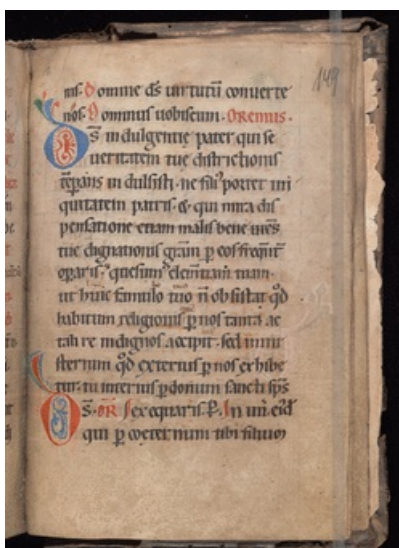 149
nis. Domine ds̄ uirtutū conuerte
nos. Dominus uobiscum. Oremus.
Ds̄ indulgentię pater qui se
ueritatem tuę districtionis
tēperans indulsisti. ne fili' portet ini
quitatem patris. & qui mira dis
pensatione etiam malis bene utens
tuę dignationis grām p eos freq̄nt̄
opāris. quesum' clem̄tiam tuam.
ut huic famulo tuo n̄ obsistat qd̄
habitum religionis p nos tanta ac
tali re indignos accipit. sed mini
sterium qd̄ exterius p nos exhibe
tur. tu interius p donum sancti sp̄s
Ds̄. OR
qui p coeternum tibi filium